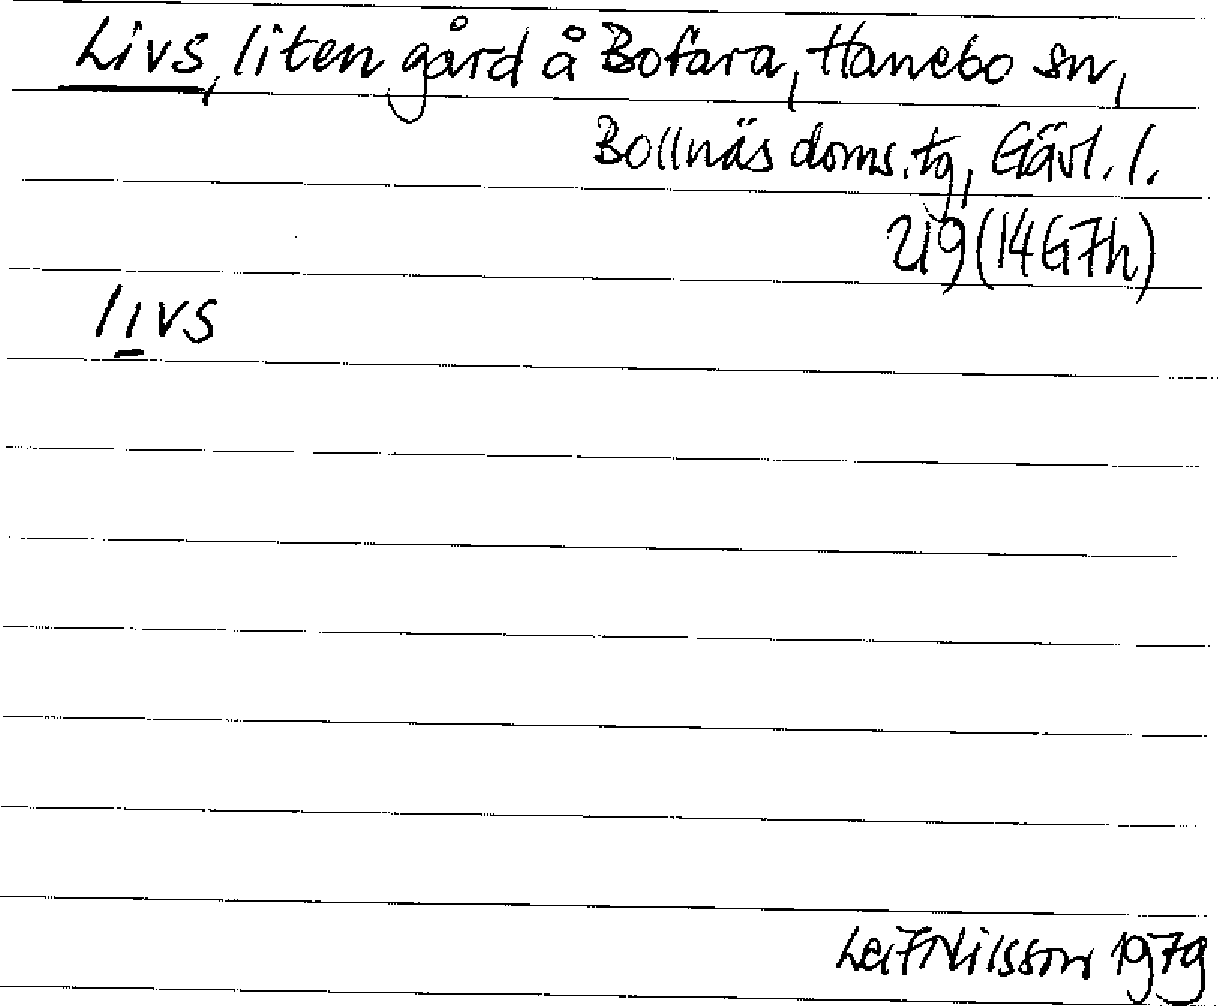 Livs, liten gård å Bofara, Hanebo sn,
Bollnäs doms. tg, Gävl. l.
219 (14G7h)
livs
Leif Nilsson 1979